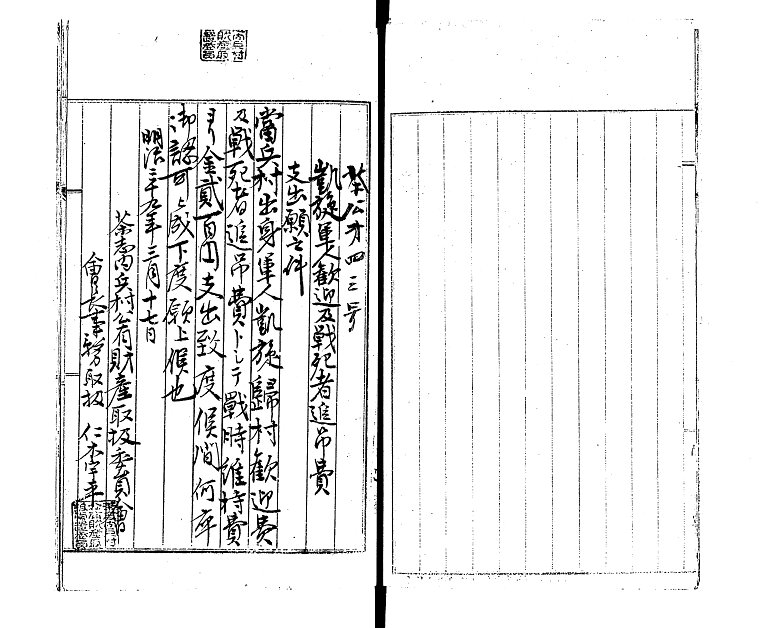 茶公第四三号
凱旋軍人歓迎及戦死者追吊費
支出願之件
當兵村出身軍人凱旋歸村歓迎費
及戦死者追吊費トシテ戦時維持費
ヨリ金貳百円支出致度候間何卒
御認可上成下度願上候也
明治三十九年三月十七日
茶志内兵村公有財産取扱委員會
會長事務取扱 仁木李来